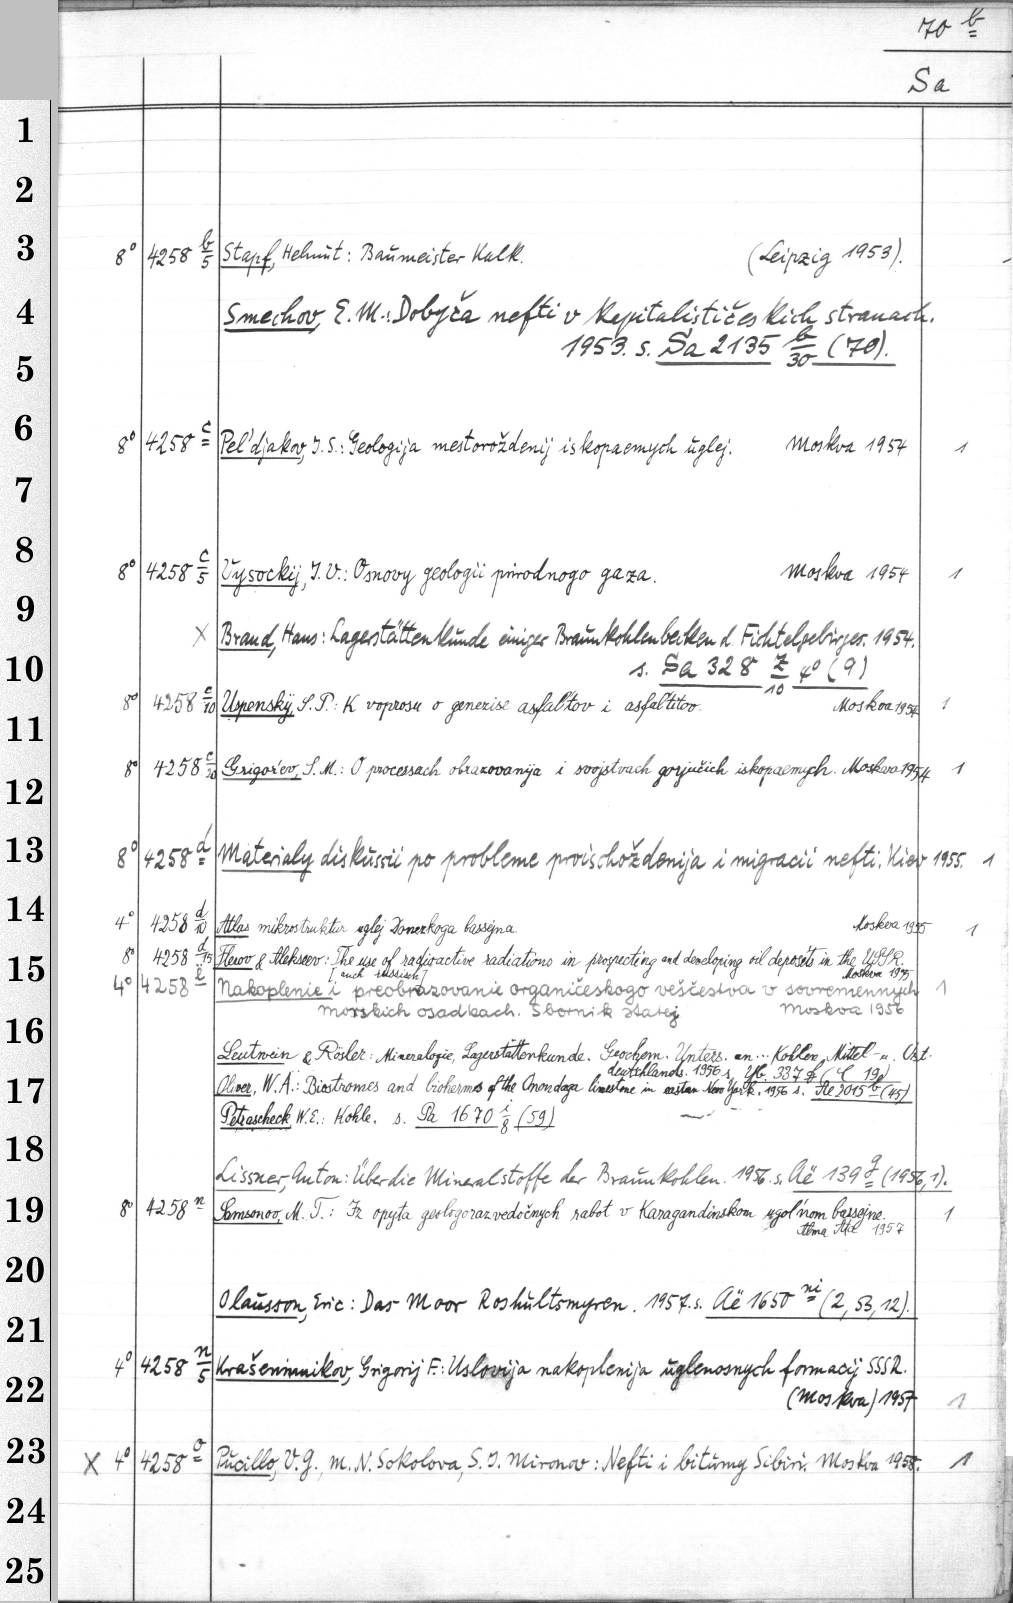 70 b
Sa
1
2
3
8° 4258 b/5 Stapf, Helmut: Baumeister Kalk. (Leipzig 1953).
4
Smechov, E. M.: Dobyča nefti v kapitalističeskich stranach.
1953. s. Sa 2135 b/30 (70).
5
6
8° 4258 c Pel'djakov, I. S.: Geologija mestoroždenij iskopaemych uglej. Moskva 1954 1
7
8
8° 4258 c/5 Vysockij, I. V.: Osnovy geologii prirodnogo gaza. Moskva 1954 1
9
x Brand, Hans: Lagerstättenkunde einiger Braunkohlenbecken d. Fichtelgebirges. 1954.
10
s. Sa 328 z/10 4° (9)
8° 4258 c/10 Uspenskij, S. P.: K voprosu o genezise asfal'tov i asfal'titov. Moskva 1954 1
11
8° 4258 c/30 Grigor'ev, S. M.: O processach obrazovanija i svojstvach gorjučich iskopaemych. Moskva 1954 1
12
13
8° 4258 d Materialy diskussii po probleme proischoždenija i migracii nefti. Kiev 1955. 1
14
4° 4258 d/10 Atlas mikrostruktur uglej Doneckogo bassejna Moskva 1955 1
8° 4258 d/15 Flerov & Alekseev: The use of radioactive radiations in prospecting and developing oil deposits in the USSR.
15
[auch russisch] Moskva 1955
4° 4258 e Nakoplenie i preobrazovanie organičeskogo veščestva v sovremennych 1
morskich osadkach. Sbornik statej Moskva 1956
16
Leutwein & Rösler: Mineralogie, Lagerstättenkunde. Geochem. Unters. an ... Kohlen Mittel- u. Ost-
deutschlands. 1956 s. Yb 337 f (C 19)
17
Oliver, W. A.: Biostromes and bioherms of the Onondaga limestone in eastern New York. 1956 s. Re 2015 b (45)
Petrascheck W. E.: Kohle. s. Pa 1670 i/8 (59)
18
Lissner, Anton: Über die Mineralstoffe der Braunkohlen. 1956. s. Aë 139 g (1956, 1).
19
8° 4258 n Samsonov, M. T.: Iz opyta geologorazvedočnych rabot v Karagandinskom ugol'nom bassejne. 1
Alma Ata 1957
20
Olausson, Eric: Das Moor Roshultsmyren. 1957. s. Aë 1650 ni (2, 53, 12).
21
4° 4258 n/5 Krašeninnikov, Grigorij F.: Uslovija nakoplenija uglenosnych formacij SSSR.
22
(Moskva) 1957 1
23
x 4° 4258 o Pucillo, V. G., M. N. Sokolova, S. I. Mironov: Nefti i bitumy Sibiri. Moskva 1958. 1
24
25